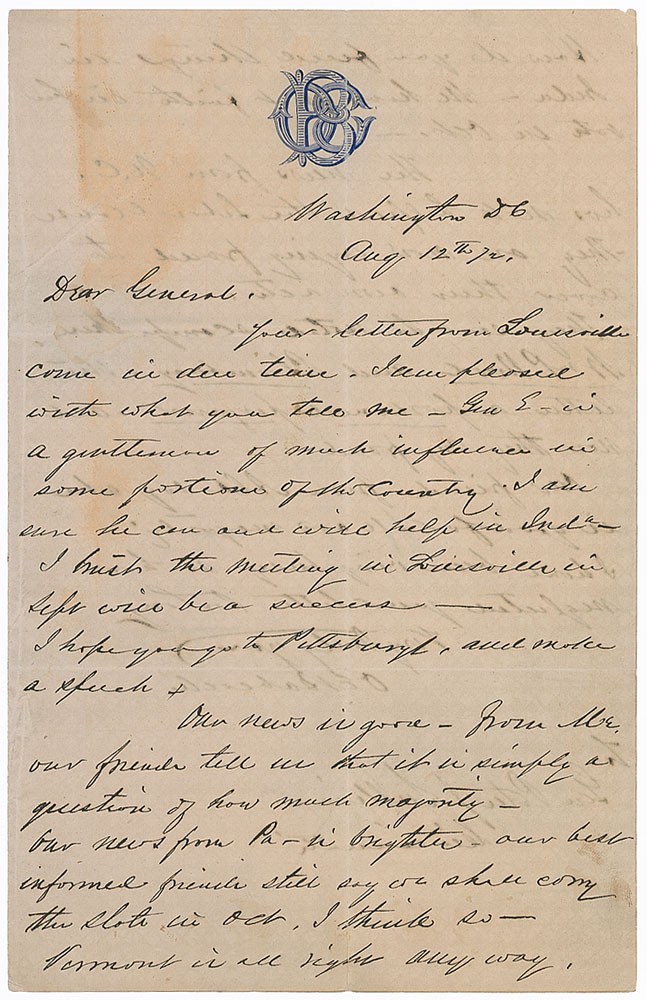 Washington DC
Aug 12th 72.
Dear General.
Your letter from Louisville
come in due time. I am pleased
with what you tell me – Gen E – is
a gentleman of much influence in
some portions of the Country. I am
sure he can and will help in Inda –
I trust the meeting in Louisville in
Sept will be a success —
I hope you go to Pittsburgh, and make
a speech
Our news is good – from Me.
our friends tell us that it is simply a
question of how much majority –
Our news from Pa – is brighter – our best
informed friends still say we shall carry
the state in Oct. I think so —
Vermont is all right any way.